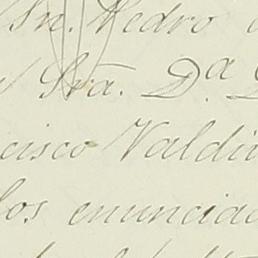 Sn. Pedro
y Sra. Da.
cisco Valdi
los enunciad